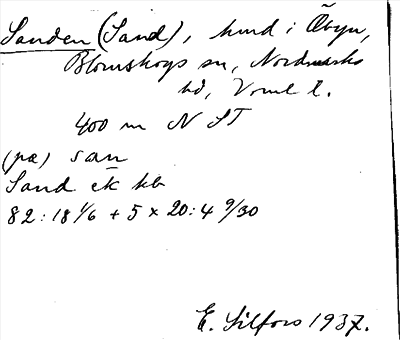 Sanden (Sand), hmd i Åbyn,
Blomskogs sn, Nordmarks
hd, Vrml l.
400 m N ST
(pa) san
Sand ek kb
82:18 1/6 + 5 x 20:4 9/30
E. Silfors 1937.